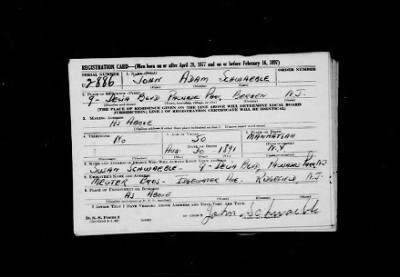 REGISTRATION CARD—(Men born on or after April 28, 1877 and on or before February 16, 1897)
SERIAL NUMBER 1. NAME (Print) ORDER NUMBER
U 2886 JOHN ADAM SCHWAEBLE
2. PLACE OF RESIDENCE (Print)
9- BLVD. PARK, BERGEN N.J.
[THE PLACE OF RESIDENCE GIVEN ON THE LINE ABOVE WILL DETERMINE LOCAL BOARD
JURISDICTION; LINE 2 OF REGISTRATION CERTIFICATE WILL BE IDENTICAL]
3. MAILING ADDRESS
AS ABOVE
4. TELEPHONE 5. AGE IN YEARS 6. PLACE OF BIRTH
NO 50 MANHATTAN
DATE OF BIRTH
30 1891 N.Y
7. NAME AND ADDRESS OF PERSON WHO WILL ALWAYS KNOW YOUR ADDRESS
SUSAN SCHWAEBLE- 9- BLVD. PARK, N.J
8. EMPLOYER'S NAME AND ADDRESS
BROS- AVE. N.J.
9. PLACE OF EMPLOYMENT OR BUSINESS
AS ABOVE
I AFFIRM THAT I HAVE VERIFIED ABOVE ANSWERS AND THAT THEY ARE TRUE.
D. S. S. Form 1 John Schwaeble